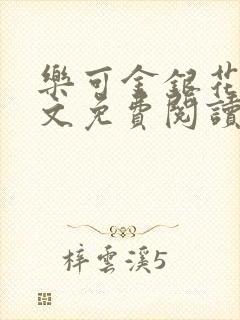 樂可金銀花
文免費閱讀
梓雲溪5